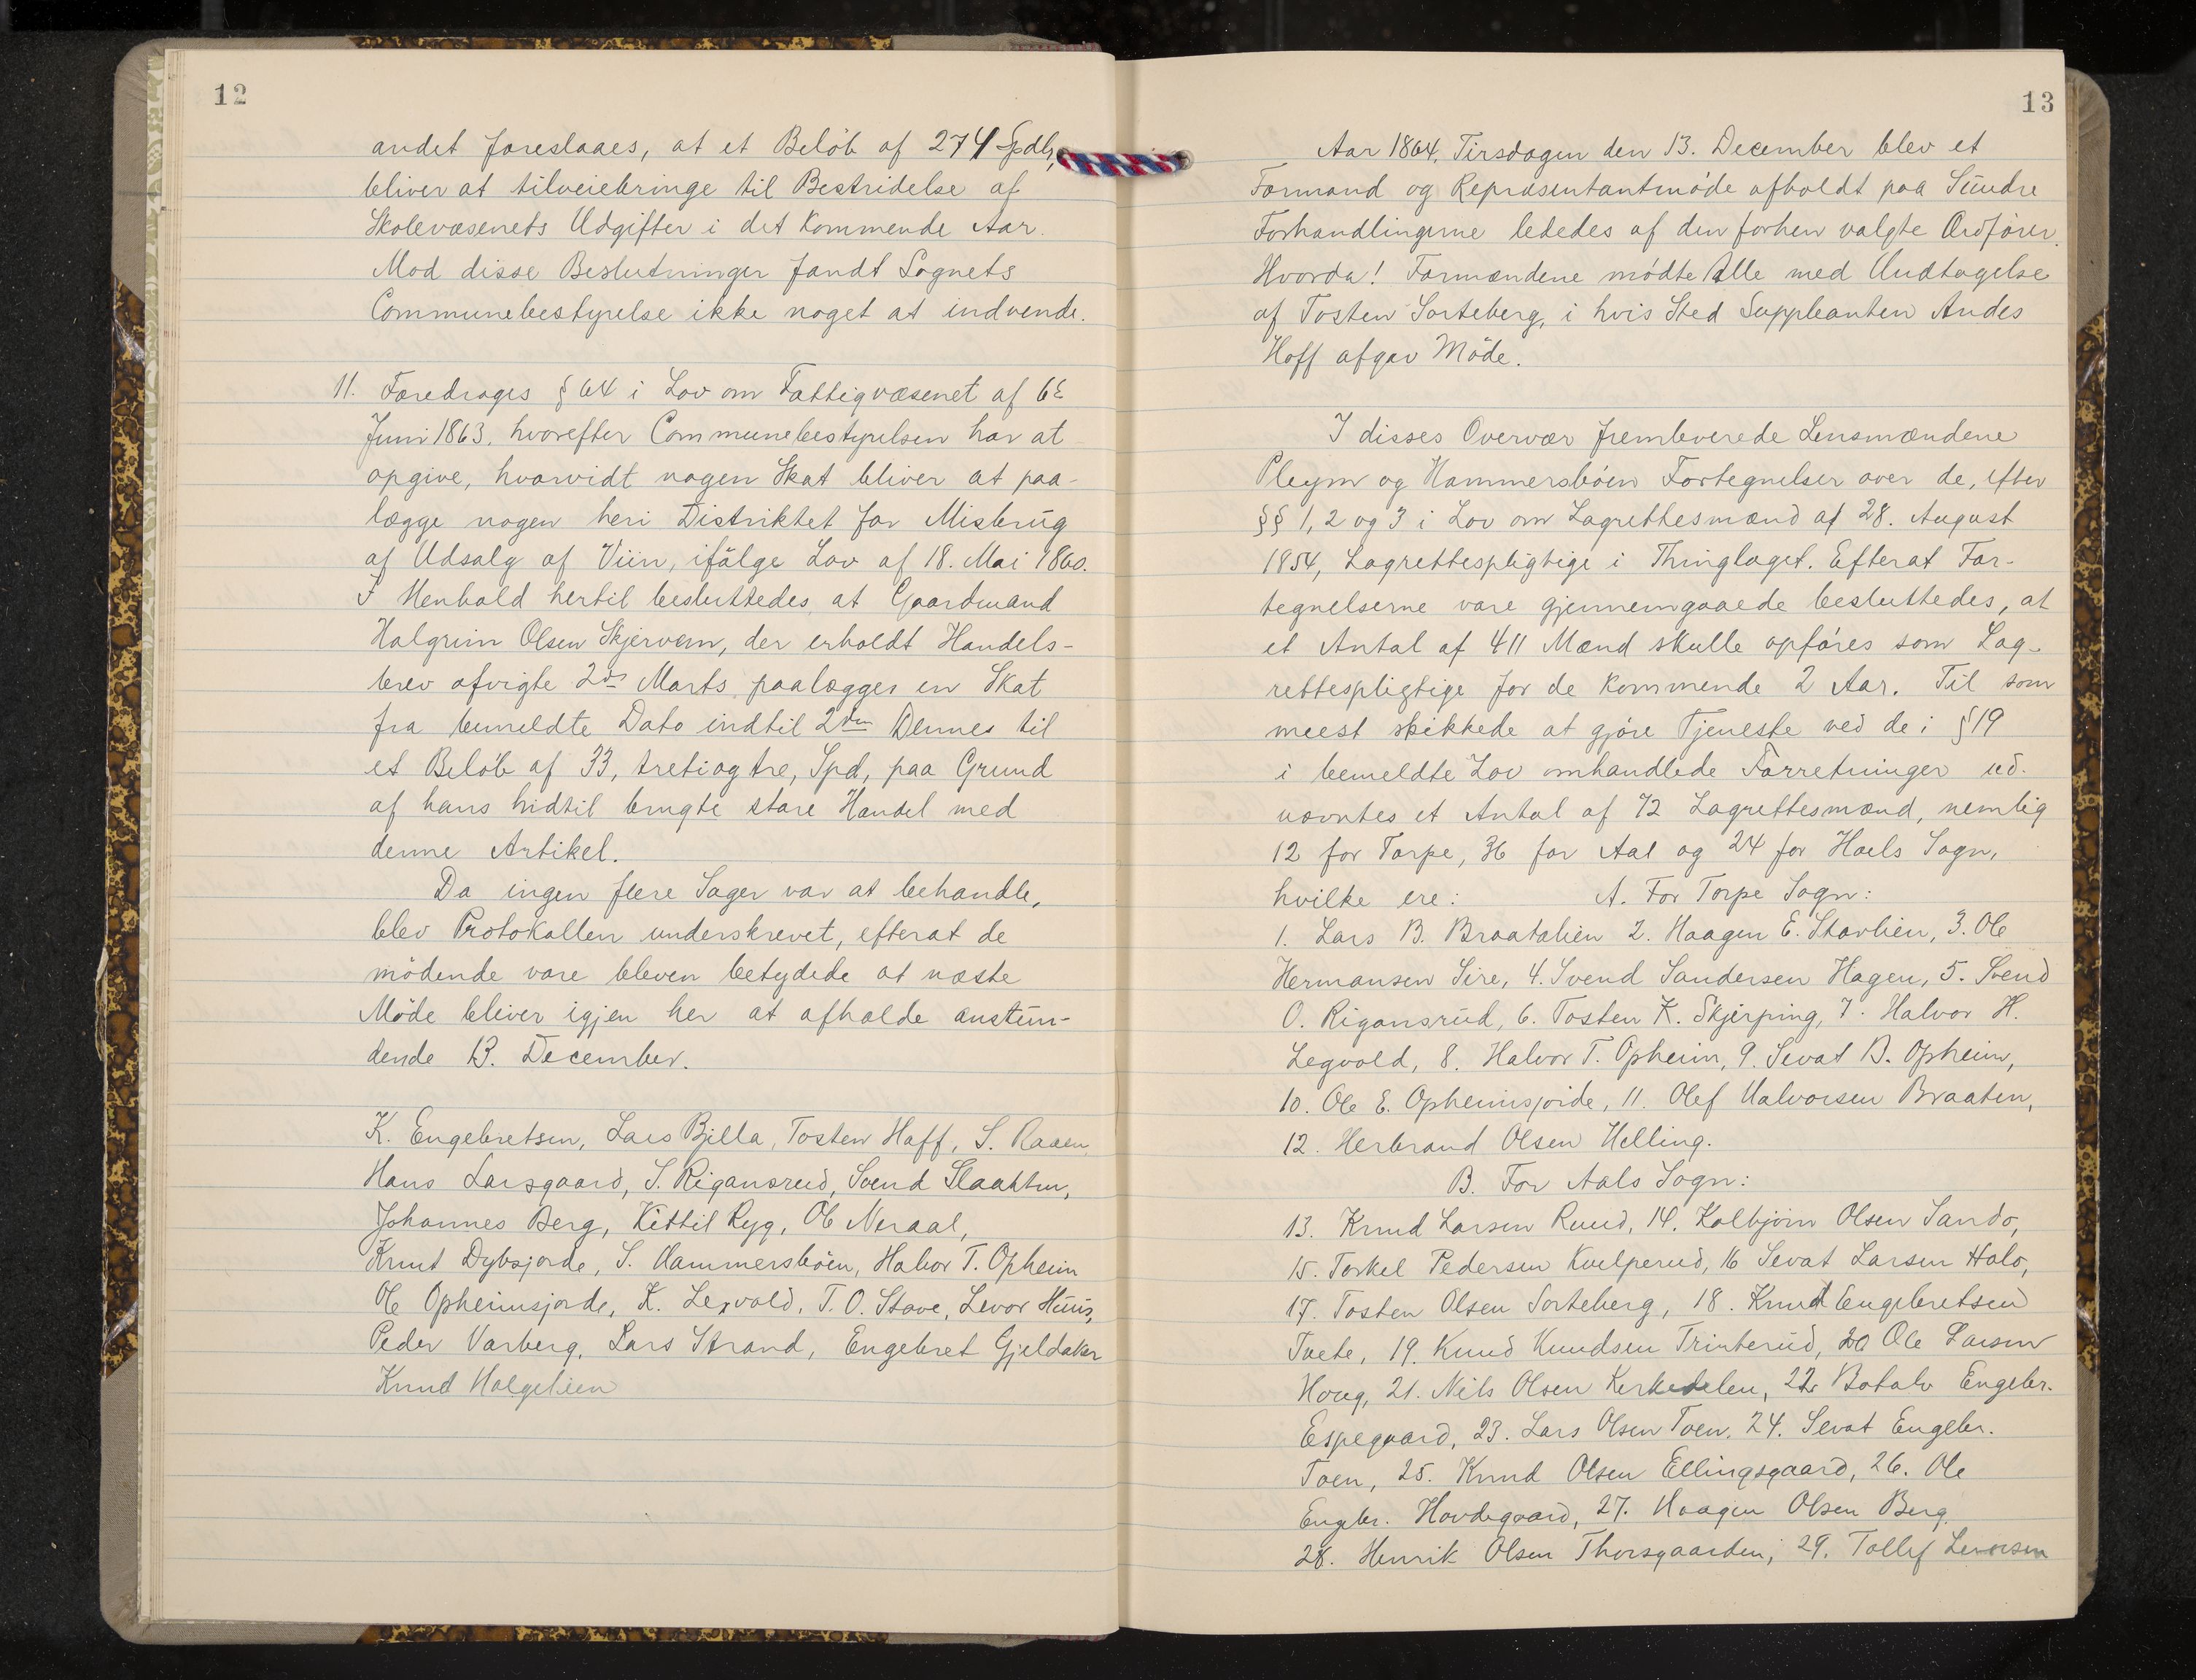 12
andet foreslaaes, at et Beløb af 274 Spdlr,
bliver at tilveiebringe til Bestridelse af
Skolevæsenets Udgifter i det kommende Aar.
Mod disse Beslutninger fandt Sognets
Communebestyrelse ikke noget at indvende.
11. Foredroges § 64 i Lov om Fattigvæsenet af 6te
Juni 1863. hvorefter Communebestyrelsen har at
opgive, hvorvidt nogen Skat bliver at paa-
lægge nogen heri Distriktet for Misbrug
af Udsalg af Viin, ifølge Lov af 18. Mai 1860.
I Henhold hertil besluttedes, at Gaardmand
Halgrim Olsen Skjervem, der erholdt Handels-
brev afvigte 2den Marts, paalægges en Skat
fra bemeldte Dato indtil 2den Dennes til
et Beløb af 33, tretiogtre, Spd, paa Grund
af hans hidtil brugte store Handel med
denne Artikel.
Da ingen flere Sager var at behandle,
blev Protokollen underskrevet, efterat de
mødende vare bleven betydede at næste
Møde bliver igjen her at afholde anstun-
dende 13. December.
K. Engebretsen, Lars Bjella, Tosten Hoff, S. Raaen
Hans Larsgaard, S. Rigansrud, Svend Slaatten,
Johannes Berg, Kittil Ryg, Ole Neraal,
Knut Dybsjorde, S. Hammersbøen, Halvor T. Opheim
Ole Opheimsjorde, K. Legvold, T. O. Stave, Levor Huus,
Peder Varberg, Lars Strand, Engebret Gjeldaker
Knud Holgelien
13
Aar 1864, Tirsdagen den 13. December blev et
Formand og Repræsentantmøde afholdt paa Sundre
Forhandlingerne lededes af den forhen valgte Ordfører.
Hvorda! Formændene mødte Alle med Undtagelse
af Tosten Sorteberg, i hvis Sted Suppleanten Andes
Hoff afgav Møde.
I disses Overvær fremleverede Lensmændene
Pleym og Hammersbøen Fortegnelser over de, efter
§§ 1, 2 og 3 i Lov om Lagrettesmænd af 28. August
1854, Lagrettespligtige i Thinglaget. Efterat For-
tegnelserne vare gjennemgaaede besluttedes, at
et Antal af 411 Mænd skulle opføres som Lag-
rettespligtige for de kommende 2 Aar. Til som
meest skikkede at gjøre Tjeneste ved de i § 19
i bemeldte Lov omhandlede Forretninger ud-
nævntes et Antal af 72 Lagrettesmænd, nemlig
12 for Torpe, 36 for Aal og 24 for Hols Sogn,
hvilke ere: A. For Torpe Sogn:
1. Lars B. Braatalien 2. Haagen E. Stavlien, 3. Ole
Hermansen Sire, 4. Svend Sandersen Hagen, 5. Svend
O. Rigansrud, 6. Tosten K. Skjerping, 7. Halvor H.
Legvold, 8. Halvor T. Opheim, 9. Sevat B. Opheim,
10. Ole E. Opheimsjorde, 11. Olef Halvorsen Braaten,
12. Herbrand Olsen Helling.
B. For Aals Sogn:
13. Knud Larsen Ruud, 14. Kolbjörn Olsen Sando,
15. Torkel Pedersen Kvelperud, 16 Sevat LarsenHolo,
17. Tosten Olsen Sorteberg, 18. Knud Engebretsen
Tvete, 19. Knud Knudsen Trinterud, 20 Ole Larsen
Houg, 21. Nils Olsen Kerkedelen, 22. Botolv Engebr.
Espegaard, 23. Lars Olsen Toen, 24. Sevat Engebr.
Toen, 25. Knud Olsen Ellingsgaard, 26. Ole
Engebr. Hovdegaard, 27. Haagen Olsen Berg.
28. Henrik Olsen Thorsgaarden, 29. Tollef Levorsen